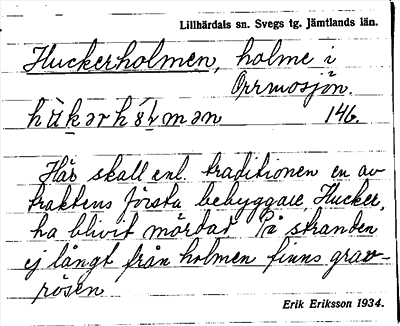 Lillhärdals sn. Svegs tg. Jämtlands län.
Huckerholmen, holme i
Orrmosjön.
hùkərhó̀lmən 146.
Här skall enl. traditionen en av
traktens första bebyggare, Hucker,
ha blivit mördad. På stranden
ej långt från holmen finns grav-
rösen
Erik Eriksson 1934.